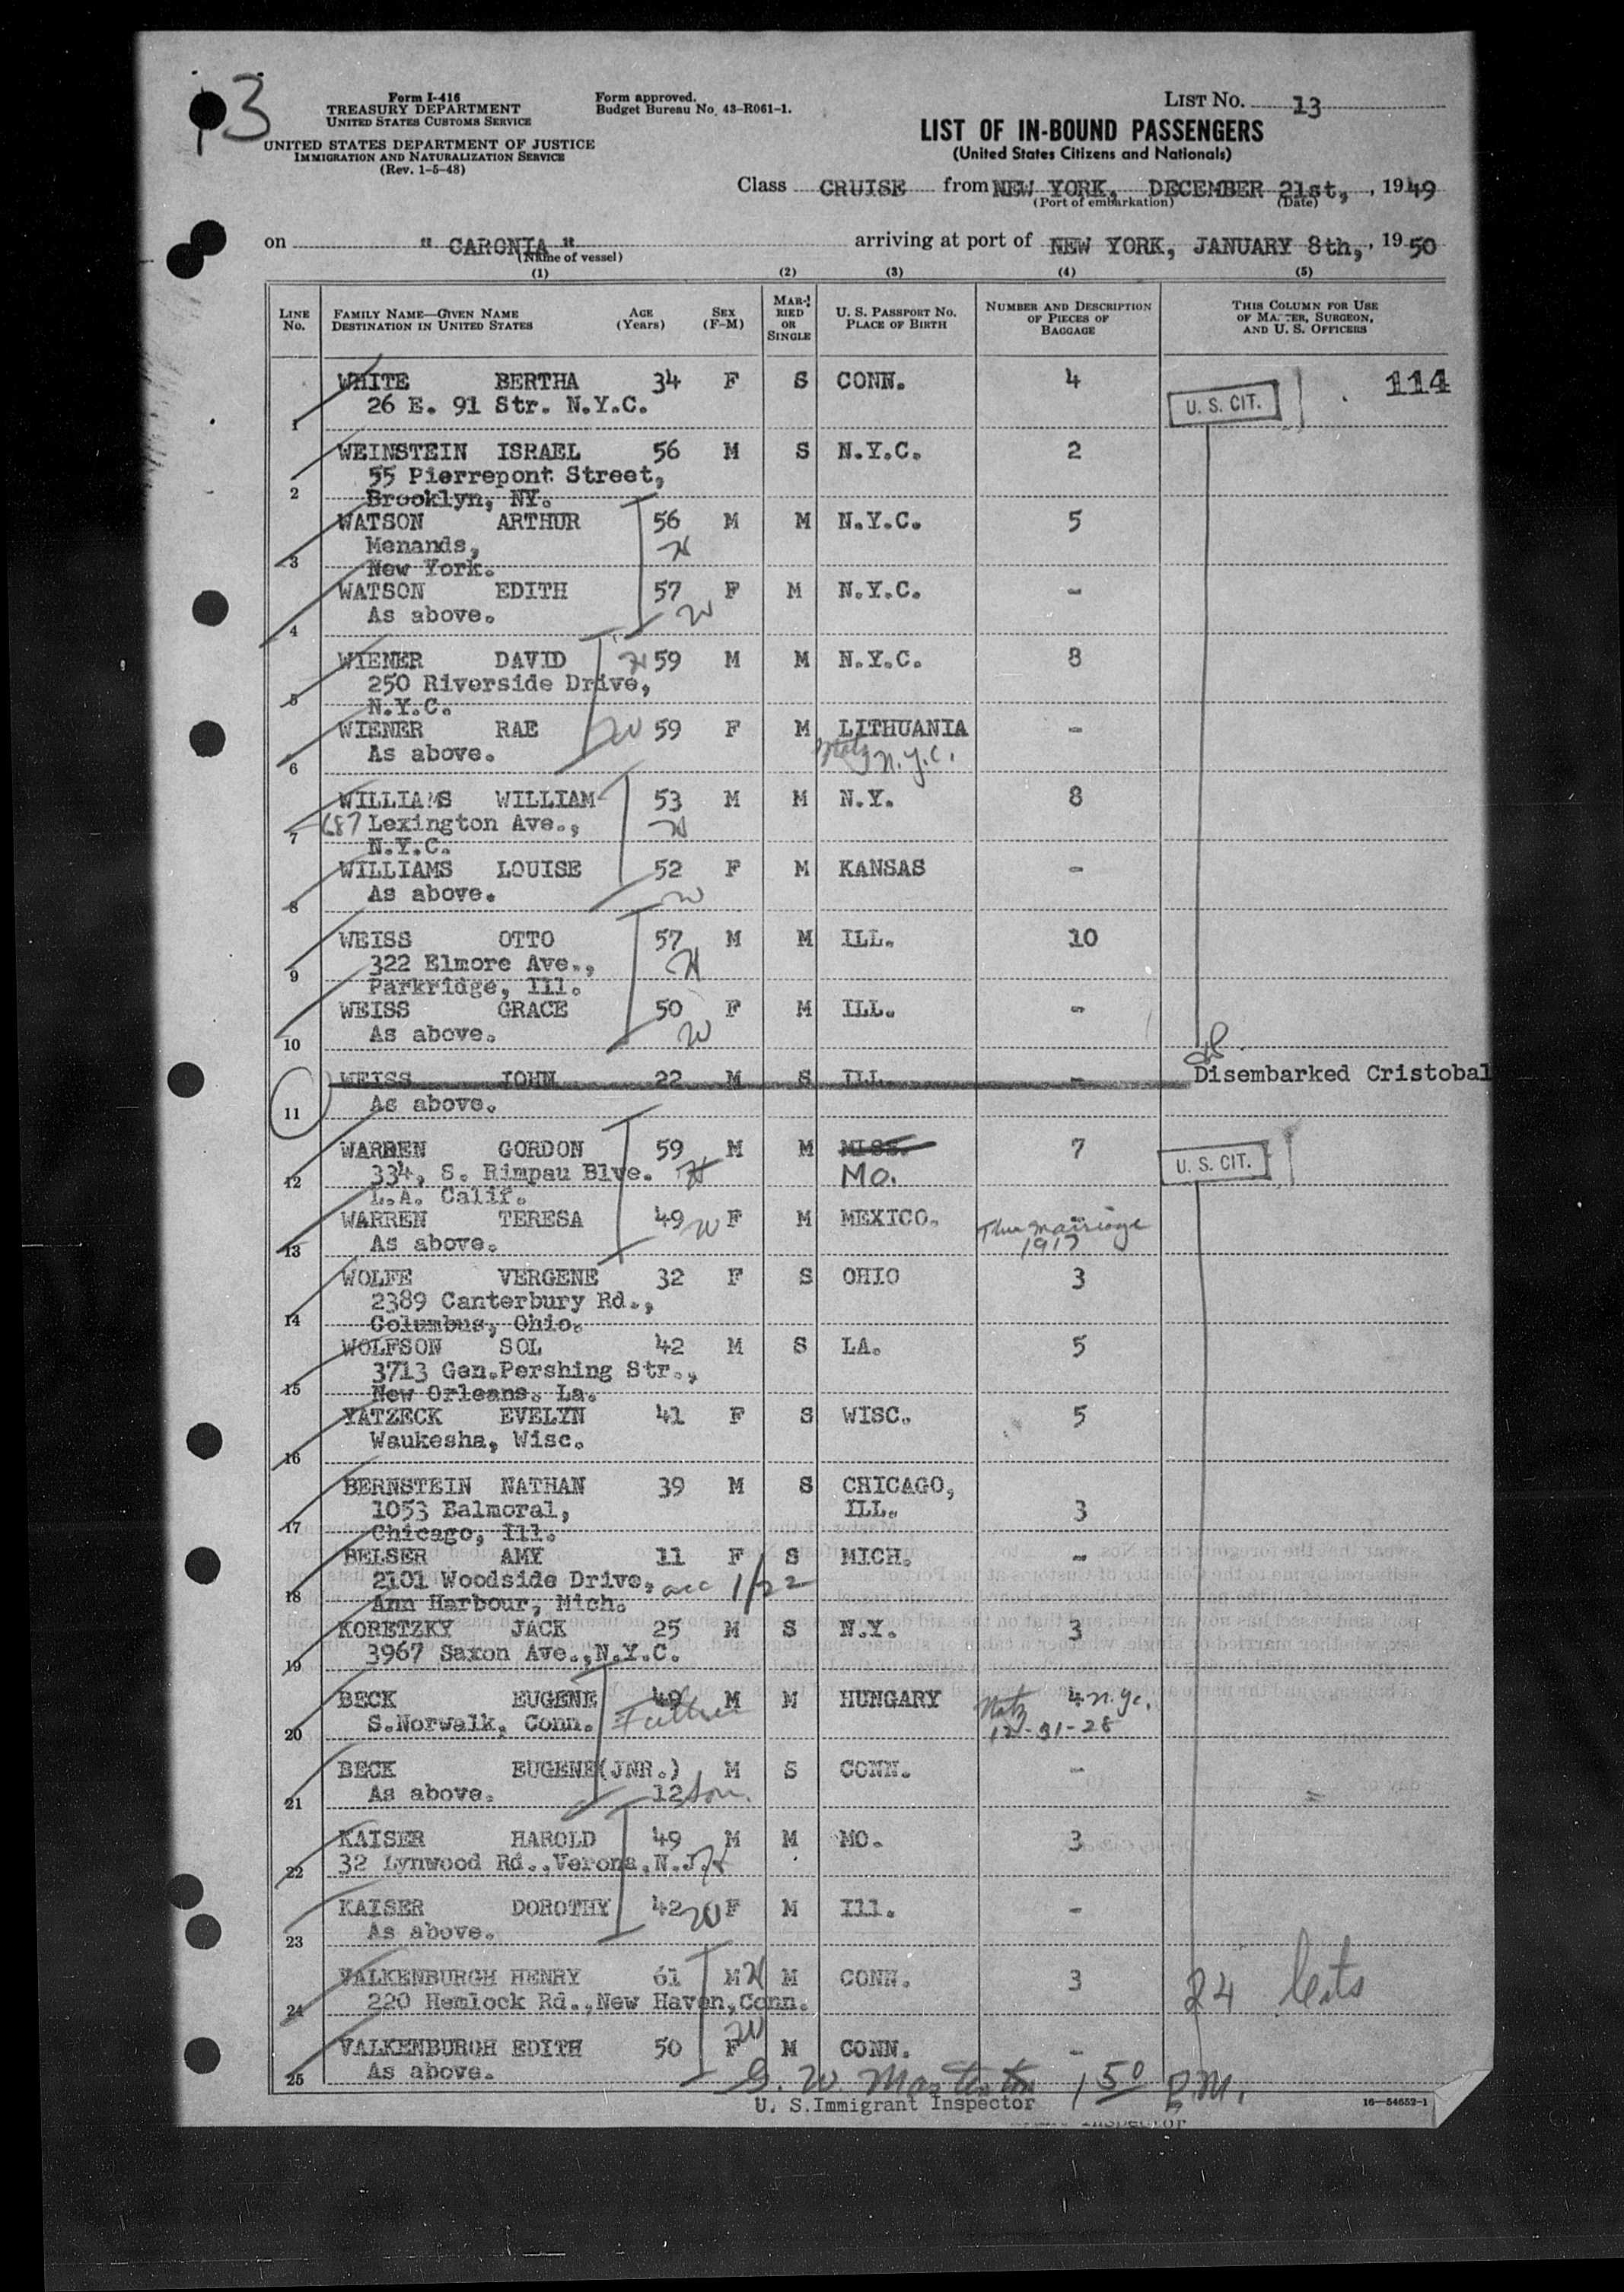 3
Form I-416
TREASURY DEPARTMENT
UNITED STATES CUSTOMS SERVICE
UNITED STATES DEPARTMENT OF JUSTICE
IMMIGRATION AND NATURALIZATION SERVICE
(Rev. 1-5-48)
Form approved.
Budget Bureau No. 43-R061-1.
LIST No. 13
LIST OF IN-BOUND PASSENGERS
(United States Citizens and Nationals)
Class CRUISE from NEW YORK, DECEMBER 21st, , 1949
(Port of embarkation) (Date)
on " CARONIA " arriving at port of NEW YORK, JANUARY 8th, , 1950
(Name of vessel)
(1) (2) (3) (4) (5)
LINE No. FAMILY NAME—GIVEN NAME DESTINATION IN UNITED STATES AGE (Years) SEX (F-M) MARRIED OR SINGLE U. S. PASSPORT No. PLACE OF BIRTH NUMBER AND DESCRIPTION OF PIECES OF BAGGAGE THIS COLUMN FOR USE OF MASTER, SURGEON, AND U. S. OFFICERS
WHITE BERTHA 34 F S CONN. 4 U. S. CIT. 114
26 E. 91 Str. N.Y.C.
1
WEINSTEIN ISRAEL 56 M S N.Y.C. 2
55 Pierrepont Street,
2 Brooklyn, NY.
WATSON ARTHUR 56 M M N.Y.C. 5
Menands, H
3 New York.
WATSON EDITH 57 F M N.Y.C. -
As above. W
4
WIENER DAVID H 59 M M N.Y.C. 8
250 Riverside Drive,
5 N.Y.C.
WIENER RAE W 59 F M LITHUANIA -
As above. N.Y.C.
6
WILLIAMS WILLIAM 53 M M N.Y. 8
687 Lexington Ave., H
7 N.Y.C.
WILLIAMS LOUISE 52 F M KANSAS -
As above. W
8
WEISS OTTO 57 M M ILL. 10
322 Elmore Ave., H
9 Parkridge, Ill.
WEISS GRACE 50 F M ILL. -
As above. W
10
WEISS JOHN 22 M S ILL. - Disembarked Cristobal
As above.
11
WARREN GORDON 59 M M MISS. 7 U. S. CIT.
334, S. Rimpau Blve. H MO.
12 L.A. Calif.
WARREN TERESA 49 W F M MEXICO. - Thru marriage
As above. 1917
13
WOLFE VERGENE 32 F S OHIO 3
2389 Canterbury Rd.,
14 Columbus, Ohio.
WOLFSON SOL 42 M S LA. 5
3713 Gen.Pershing Str.,
15 New Orleans. La.
YATZECK EVELYN 41 F S WISC. 5
Waukesha, Wisc.
16
BERNSTEIN NATHAN 39 M S CHICAGO,
1053 Balmoral, ILL. 3
17 Chicago, Ill.
BELSER AMY 11 F S MICH. -
2101 Woodside Drive, acc 1/22
18 Ann Harbour, Mich.
KORETZKY JACK 25 M S N.Y. 3
3967 Saxon Ave.,N.Y.C.
19
BECK EUGENE 49 M M HUNGARY Natz 4 N.Y.C.
S.Norwalk, Conn. Father 12-31-28
20
BECK EUGENE(JNR.) M S CONN. -
As above. 12 Son.
21
KAISER HAROLD 49 M M MO. 3
32 Lynwood Rd.,Verona,N.J. H
22
KAISER DOROTHY 42 W F M Ill. -
As above.
23
VALKENBURGH HENRY 61 M H M CONN. 3 24 Cits
220 Hemlock Rd.,New Haven,Conn.
24
VALKENBURGH EDITH 50 F W M CONN. -
As above.
25
1 50 P.M.
U. S.Immigrant Inspector
16—54652-1